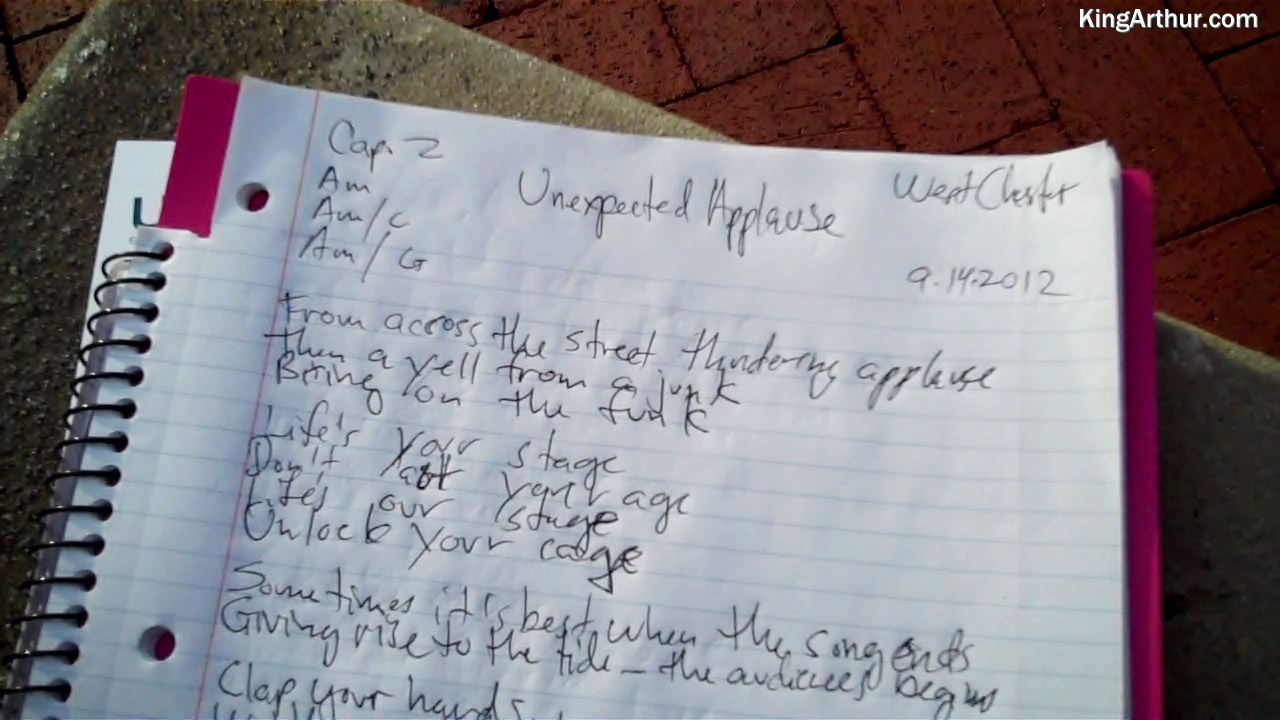 KingArthur.com
Cap. 2
Am
Am/C
Am/G
Unexpected Applause
West Chester
9.14.2012
From across the street thundering applause
then a yell from a junk
Bring on the funk
Life's your stage
Don't act your age
Life's our stage
Unlock your cage
Sometimes it's best when the song ends
Giving rise to the tide – the audiences begins
Clap your hands